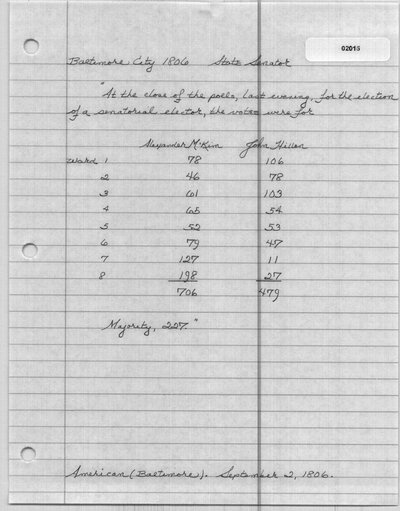 02015
Baltimore City 1806 State Senator
"At the close of the polls, last evening, for the election
of a senatorial elector, the votes were for
Alexander McKim John Hillen
ward 1 78 106
2 46 78
3 61 103
4 65 54
5 52 53
6 79 47
7 127 11
8 198 27
706 479
Majority, 227."
American (Baltimore). September 2, 1806.